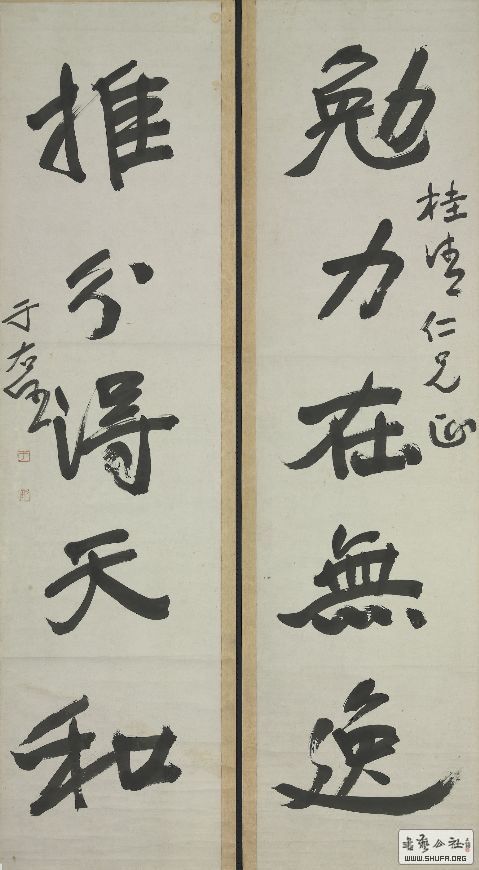 桂清仁兄正
勉力在無逸
推分得天和
于右任
書藝公社
WWW.SHUFA.ORG